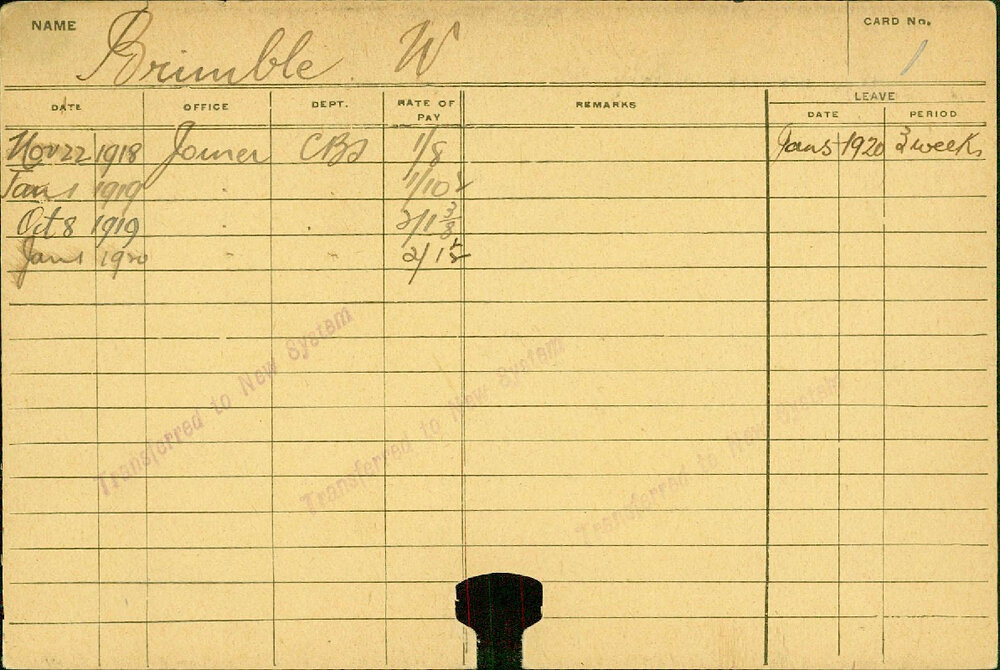 NAME Brimble W CARD No. 1
DATE OFFICE DEPT. RATE OF PAY REMARKS LEAVE
DATE PERIOD
Nov 22 1918 Joiner CBS 1/8 Jan 5 1920 3 weeks
Jan 1 1919 " 1/10½
Oct 8 1919 " " 2/1 3/8
Jan 1 1920 " " 2/1½
Transferred to New System
Transferred to New System
Transferred to New System